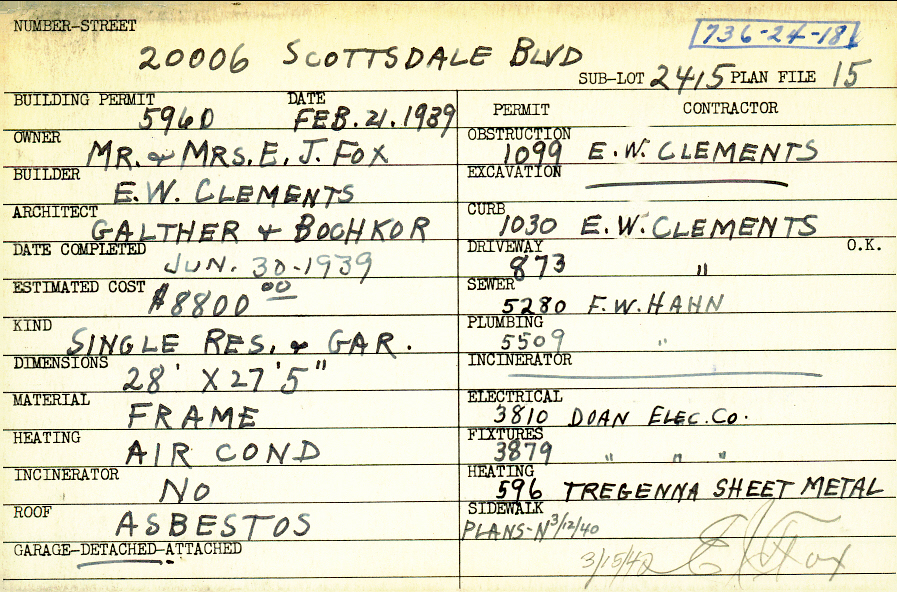 NUMBER-STREET
736-24-18
20006 SCOTTSDALE BLVD
SUB-LOT 2415 PLAN FILE 15
BUILDING PERMIT DATE
596D FEB. 21. 1939
OWNER
MR. & MRS. E. J. FOX
BUILDER
E.W. CLEMENTS
ARCHITECT
GALTHER & BOCHKOR
DATE COMPLETED
JUN. 30-1939
ESTIMATED COST
$8800 00
KIND
SINGLE RES. & GAR.
DIMENSIONS
28' X 27'5"
MATERIAL
FRAME
HEATING
AIR COND
INCINERATOR
NO
ROOF
ASBESTOS
GARAGE-DETACHED-ATTACHED
PERMIT CONTRACTOR
OBSTRUCTION
1099 E.W. CLEMENTS
EXCAVATION
CURB
1030 E.W. CLEMENTS
DRIVEWAY O.K.
873 "
SEWER
5280 F.W. HAHN
PLUMBING
5509 "
INCINERATOR
ELECTRICAL
3810 DOAN ELEC. CO.
FIXTURES
3879 " " "
HEATING
596 TREGENNA SHEET METAL
SIDEWALK
PLANS-N 3/12/40
3/15/40 E J Fox